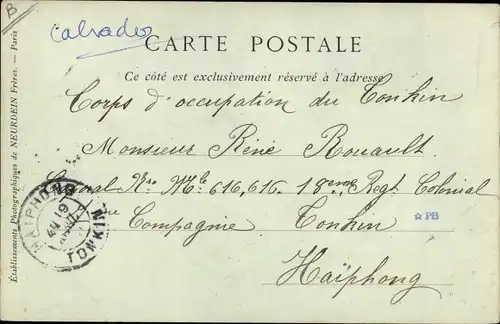 B
Calvados
CARTE POSTALE
Ce côté est exclusivement réservé à l'adresse
Corps d'occupation du Tonkin
Monsieur René Rouault.
Caporal Nro Mle 616,616. 18eme Regt Colonial
eme Compagnie. Tonkin
☆PB
Haïphong
HAIPHONG
TONKIN
Établissements Photographiques de NEURDEIN Frères. — Paris